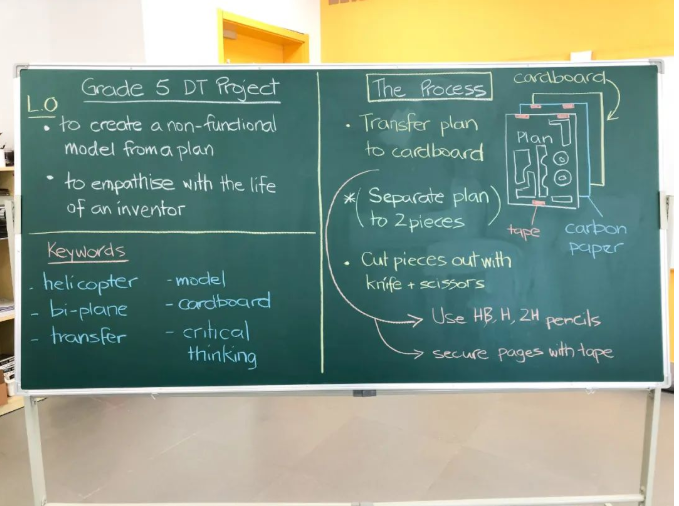 Grade 5 DT Project
L.O
• to create a non-functional
model from a plan
• to empathise with the life
of an inventor
Keywords
- helicopter
- bi-plane
- transfer
- model
- cardboard
- critical
thinking
The Process
• Transfer plan
to cardboard
* (Separate plan
to 2 pieces)
• Cut pieces out with
knife + scissors
Use HB, H, 2H pencils
secure pages with tape
cardboard
Plan
tape
carbon
paper